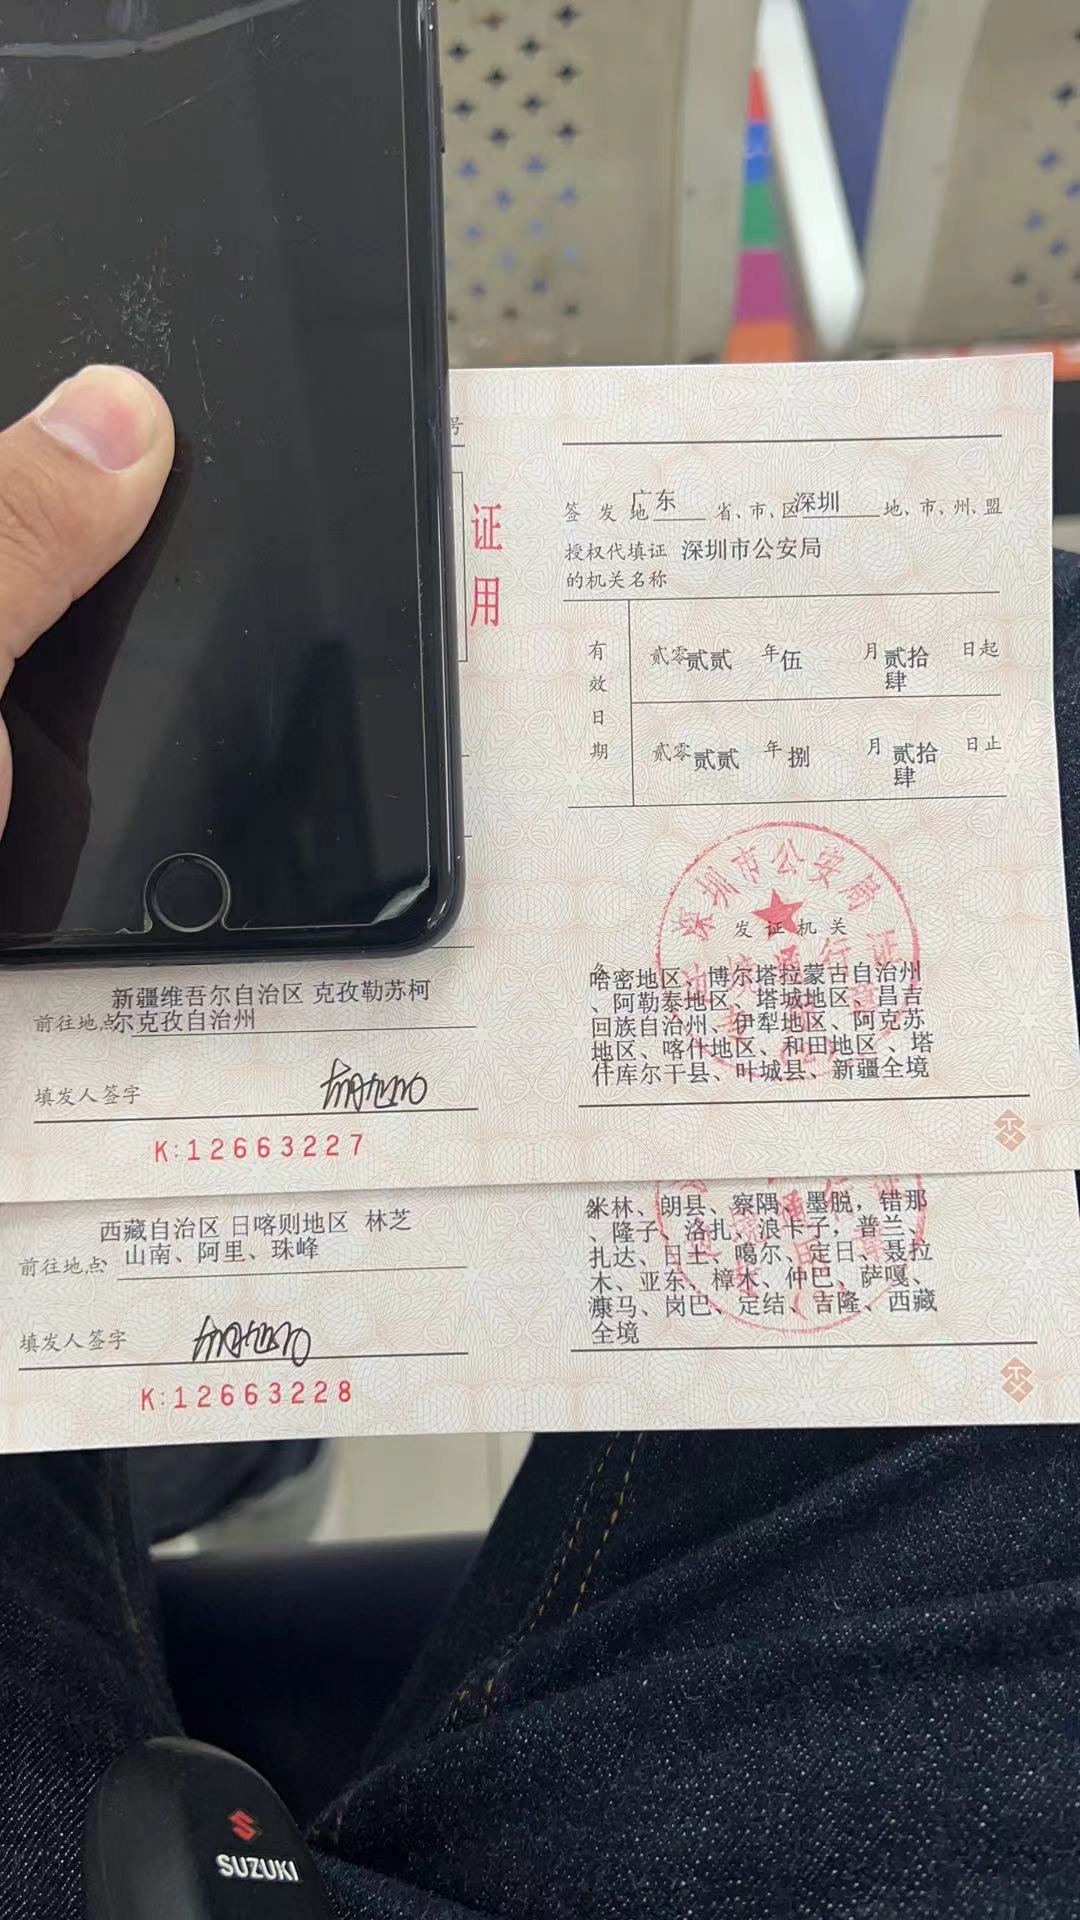 号
证
用
签发地 广东 省、市、区 深圳 地、市、州、盟
授权代填证 深圳市公安局
的机关名称
有效日期
贰零贰贰 年 伍 月 贰拾肆 日起
贰零贰贰 年 捌 月 贰拾肆 日止
深圳市公安局
发证机关
前往地点 新疆维吾尔自治区 克孜勒苏柯
尔克孜自治州
哈密地区、博尔塔拉蒙古自治州
、阿勒泰地区、塔城地区、昌吉
回族自治州、伊犁地区、阿克苏
地区、喀什地区、和田地区、塔
什库尔干县、叶城县、新疆全境
填发人签字
K:12663227
前往地点 西藏自治区 日喀则地区 林芝
山南、阿里、珠峰
米林、朗县、察隅、墨脱，错那
、隆子、洛扎、浪卡子，普兰、
扎达、日土、噶尔、定日、聂拉
木、亚东、樟木、仲巴、萨嘎、
康马、岗巴、定结、吉隆、西藏
全境
填发人签字
K:12663228
SUZUKI